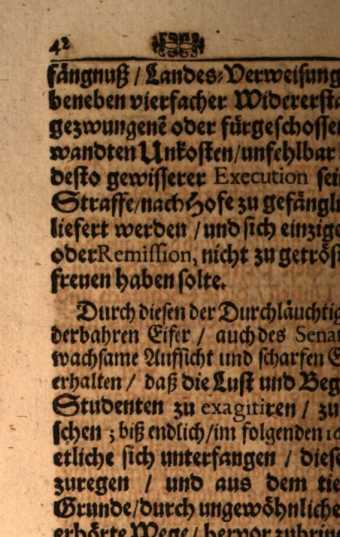 42
fängnuß / Landes-Verweisung
beneben vierfacher Widererst
gezwungenē oder fürgeschossen
wandten Unkosten/unfehlbar
desto gewisserer Execution sei
Straffe/nach Hofe zu gefängl
liefert werden / und sich einzige
oder Remission, nicht zu getrös
freuen haben solte.
Durch diesen der Durchläuchtig
derbahren Eifer / auch des Senat
wachsame Auffsicht und scharfen E
erhalten / daß die Lust und Beg
Studenten zu exagitiren / zu
schen ; biß endlich/im folgenden 16
etliche sich unterfangen / diese
zuregen / und aus dem tie
Grunde/durch ungewöhnliche
erhörte Wege / hervor zubring